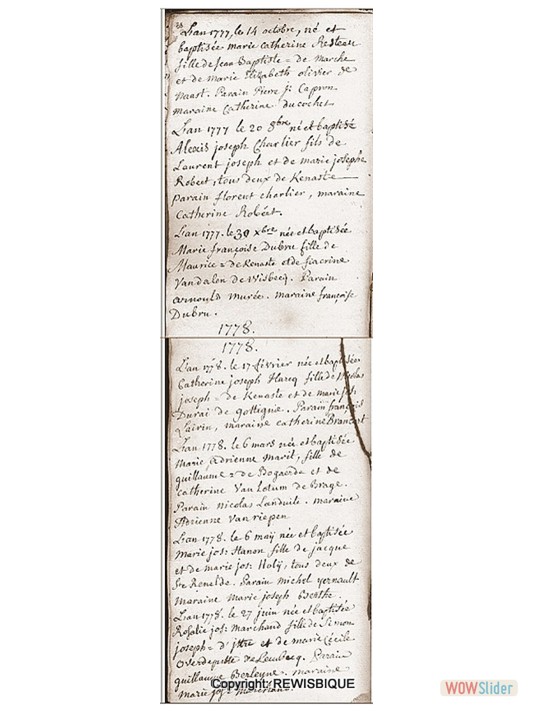 L'an 1777, le 14 octobre, né et
baptisée marie catherine
fille de Jean Baptiste = de marche
et de marie Elizabeth olivier de
naast. Parain Pierre Capron
maraine Catherine ducochet
L'an 1777 le 20 8bre né et baptisé
Alexis joseph Charlier fils de
Laurent joseph et de marie josephe
Robert, tous deux de Kenaste
parain florent charlier, maraine
Catherine Robert.
L'an 1777. le 30 xbre née et baptisée
Marie françoise Dubru fille de
Maurice = de Kenaste et de
Vandalen de Wisbecq. Parain
arnould murée. maraine françoise
Dubru.
1778.
1778.
L'an 1778. le 17 février née et baptisée
Catherine joseph fille de Nicolas
joseph = de Kenaste et de marie jos:
Durai de gottigne. Parain françois
maraine catherine
L'an 1778. le 6 mars née et baptisée
marie adrienne maril, fille de
guillaume = de Bogaerde et de
catherine Van lotum de Brage.
Parain nicolas Landuile. maraine
Adrienne Van riepen
L'an 1778. le 6 maÿ née et baptisée
Marie jos: Hanon fille de jacque
et de marie jos: tous deux de
Ste Renelde. Parain michel yernault
Maraine marie joseph Berthe.
L'an 1778. le 27 juin née et baptisée
Rosalie jos: marchand fille de Simon
joseph = d'ittre et de marie Cécile
de Lembecq. Parain
guillaume Berleyne. maraine
marie jos:
Copyright: REWISBIQUE
WOWSlider